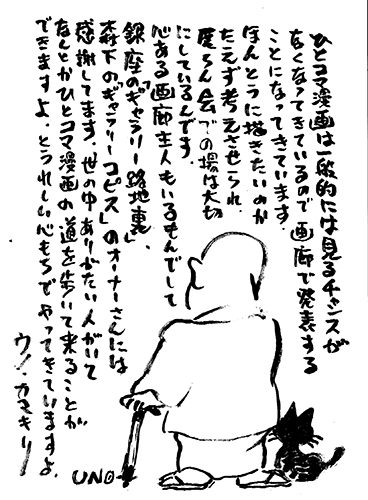 ひとコマ漫画は一般的には見るチャンスが
なくなってきているので画廊で発表する
ことになってきています。
ほんとうに描きたいのか
たえず考えさせられ、
展らん会での場は大切
にしているんです。
心ある画廊主人もいるもんでして
銀座の「ギャラリー路地裏」
森下の「ギャラリーコピス」のオーナーさんには
感謝してます。世の中ありがたい人がいて
なんとかひとコマ漫画の道を歩いて来ることが
できますよ、とうれしい心もちでやってきていますよ。
ウノ・カマキリ
UNO